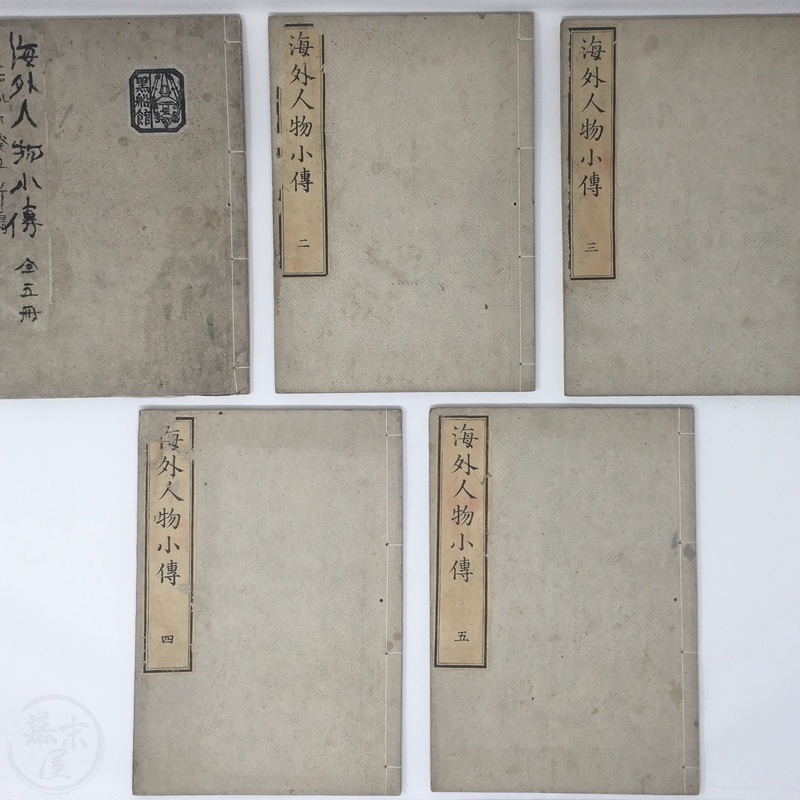 海外人物小傳 全五冊
黒船館
海外人物小傳 二
海外人物小傳 三
海外人物小傳 四
海外人物小傳 五
幕末屋